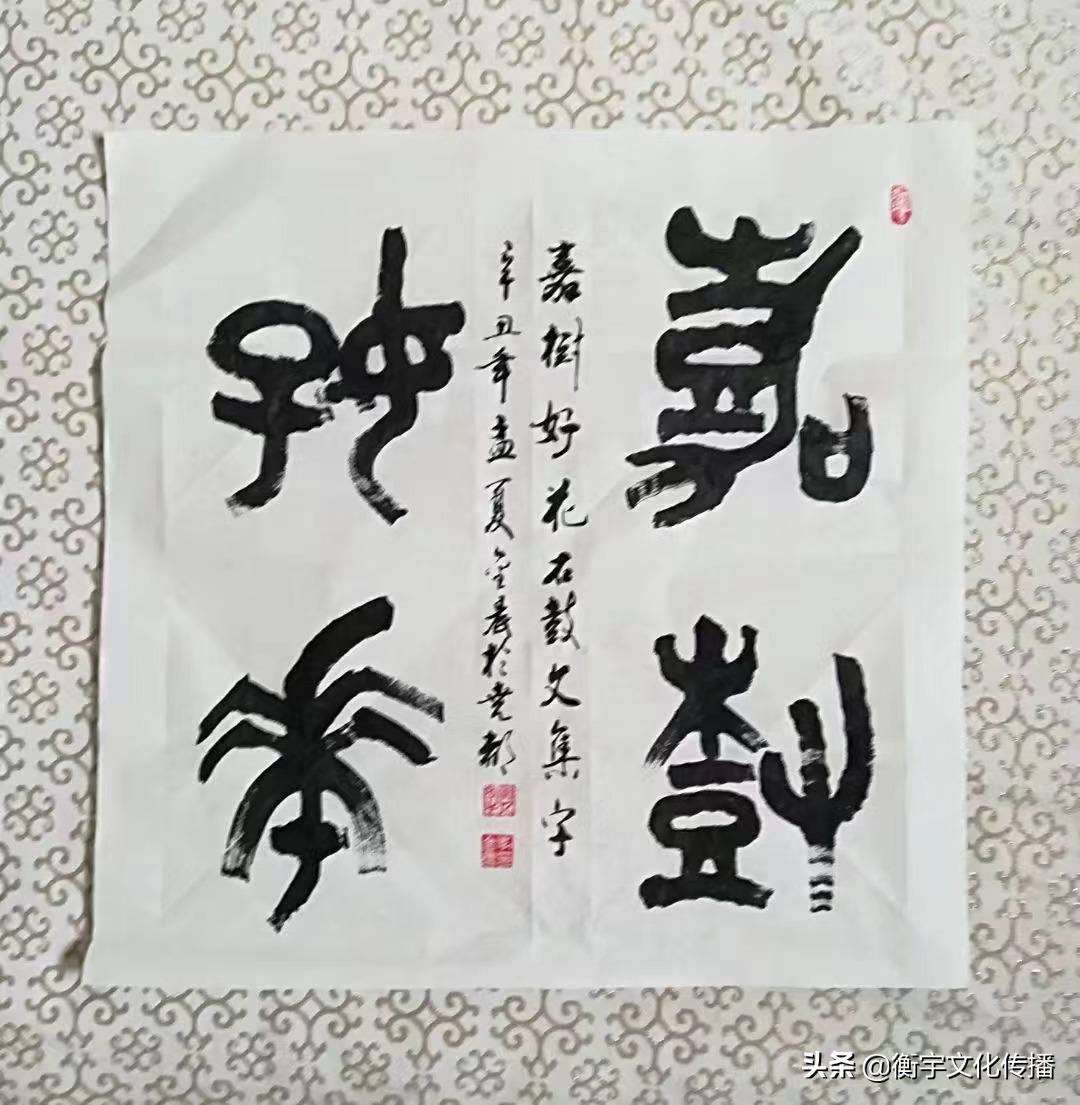 嘉樹
好華
嘉樹好花石鼓文集字
辛丑年孟夏金晨於堯都
头条 @衡宇文化传播